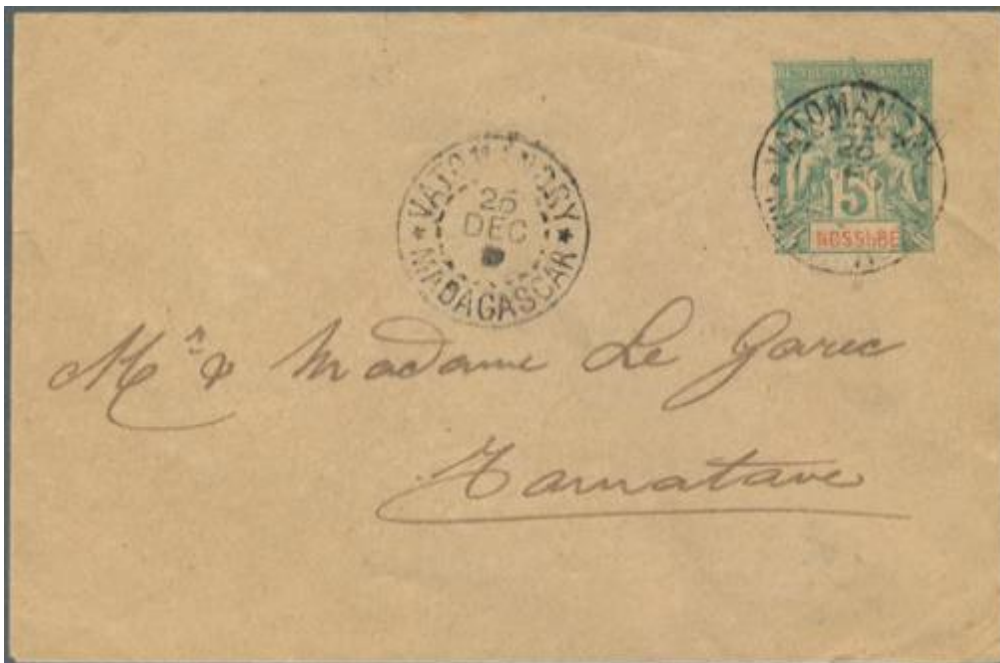 VATOMANDRY
26
DEC
MADAGASCAR
VATOMANDRY
26
5
NOSSI-BE
Mr & Madame Le Garec
Tamatave